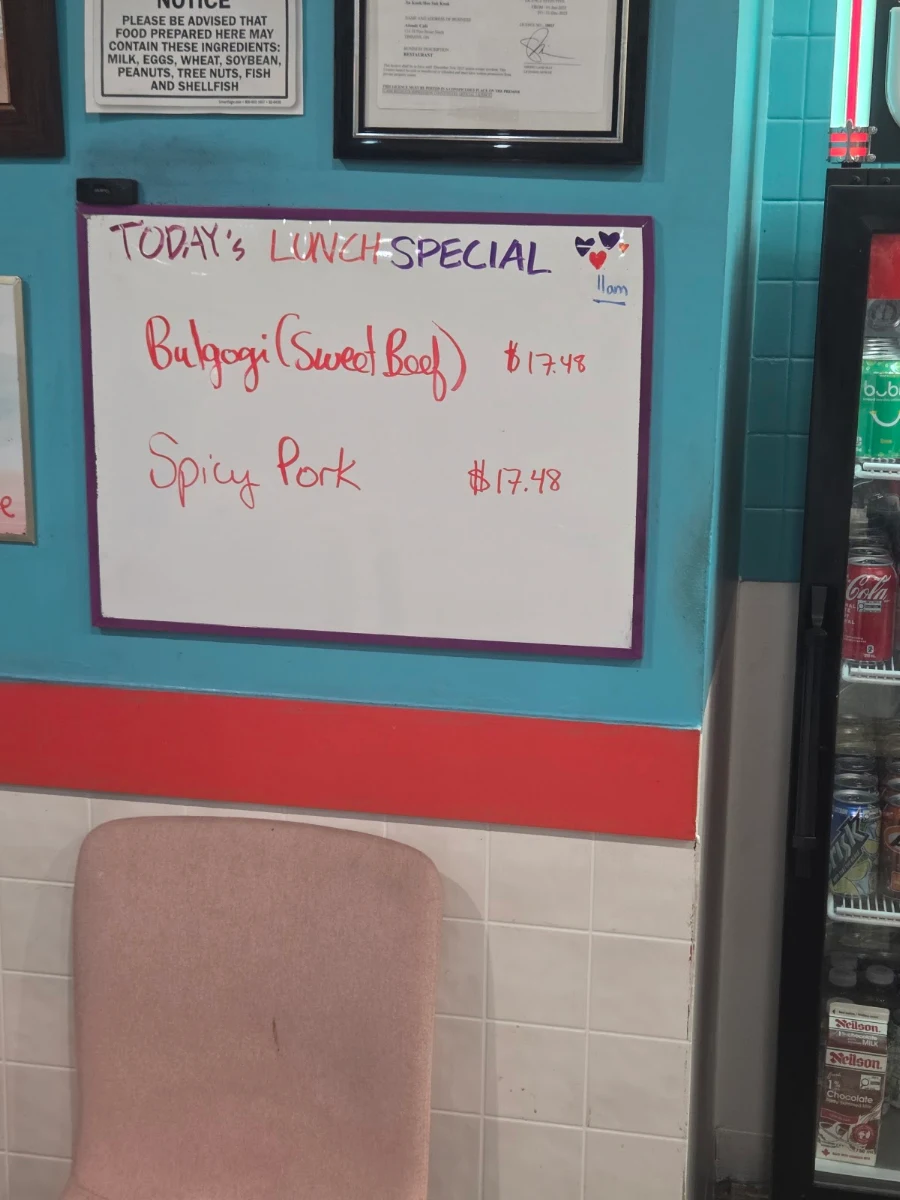 NOTICE
PLEASE BE ADVISED THAT
FOOD PREPARED HERE MAY
CONTAIN THESE INGREDIENTS:
MILK, EGGS, WHEAT, SOYBEAN,
PEANUTS, TREE NUTS, FISH
AND SHELLFISH
BUSINESS DESCRIPTION:
RESTAURANT
TODAY'S LUNCH SPECIAL
11am
Bulgogi (Sweet Beef) $17.48
Spicy Pork $17.48
e
bub
Cola
Neilson
MILK
Neilson
1%
Chocolate